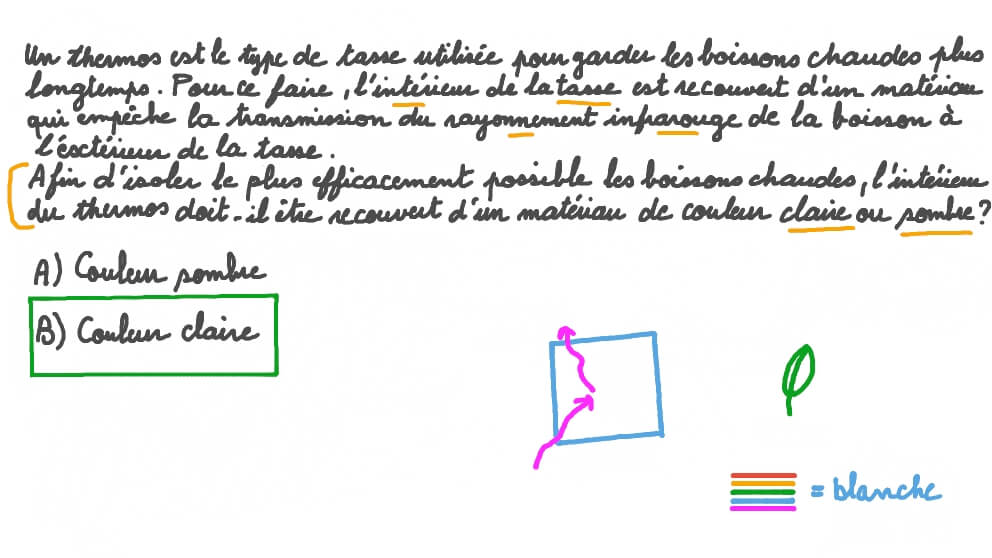 Un thermos est le type de tasse utilisée pour garder les boissons chaudes plus
longtemps. Pour ce faire, l'intérieur de la tasse est recouvert d'un matériau
qui empêche la transmission du rayonnement infrarouge de la boisson à
l'éxctérieur de la tasse.
Afin d'isoler le plus efficacement possible les boissons chaudes, l'intérieur
du thermos doit-il être recouvert d'un matériau de couleur claire ou sombre?
A) Couleur sombre
B) Couleur claire
= blanche